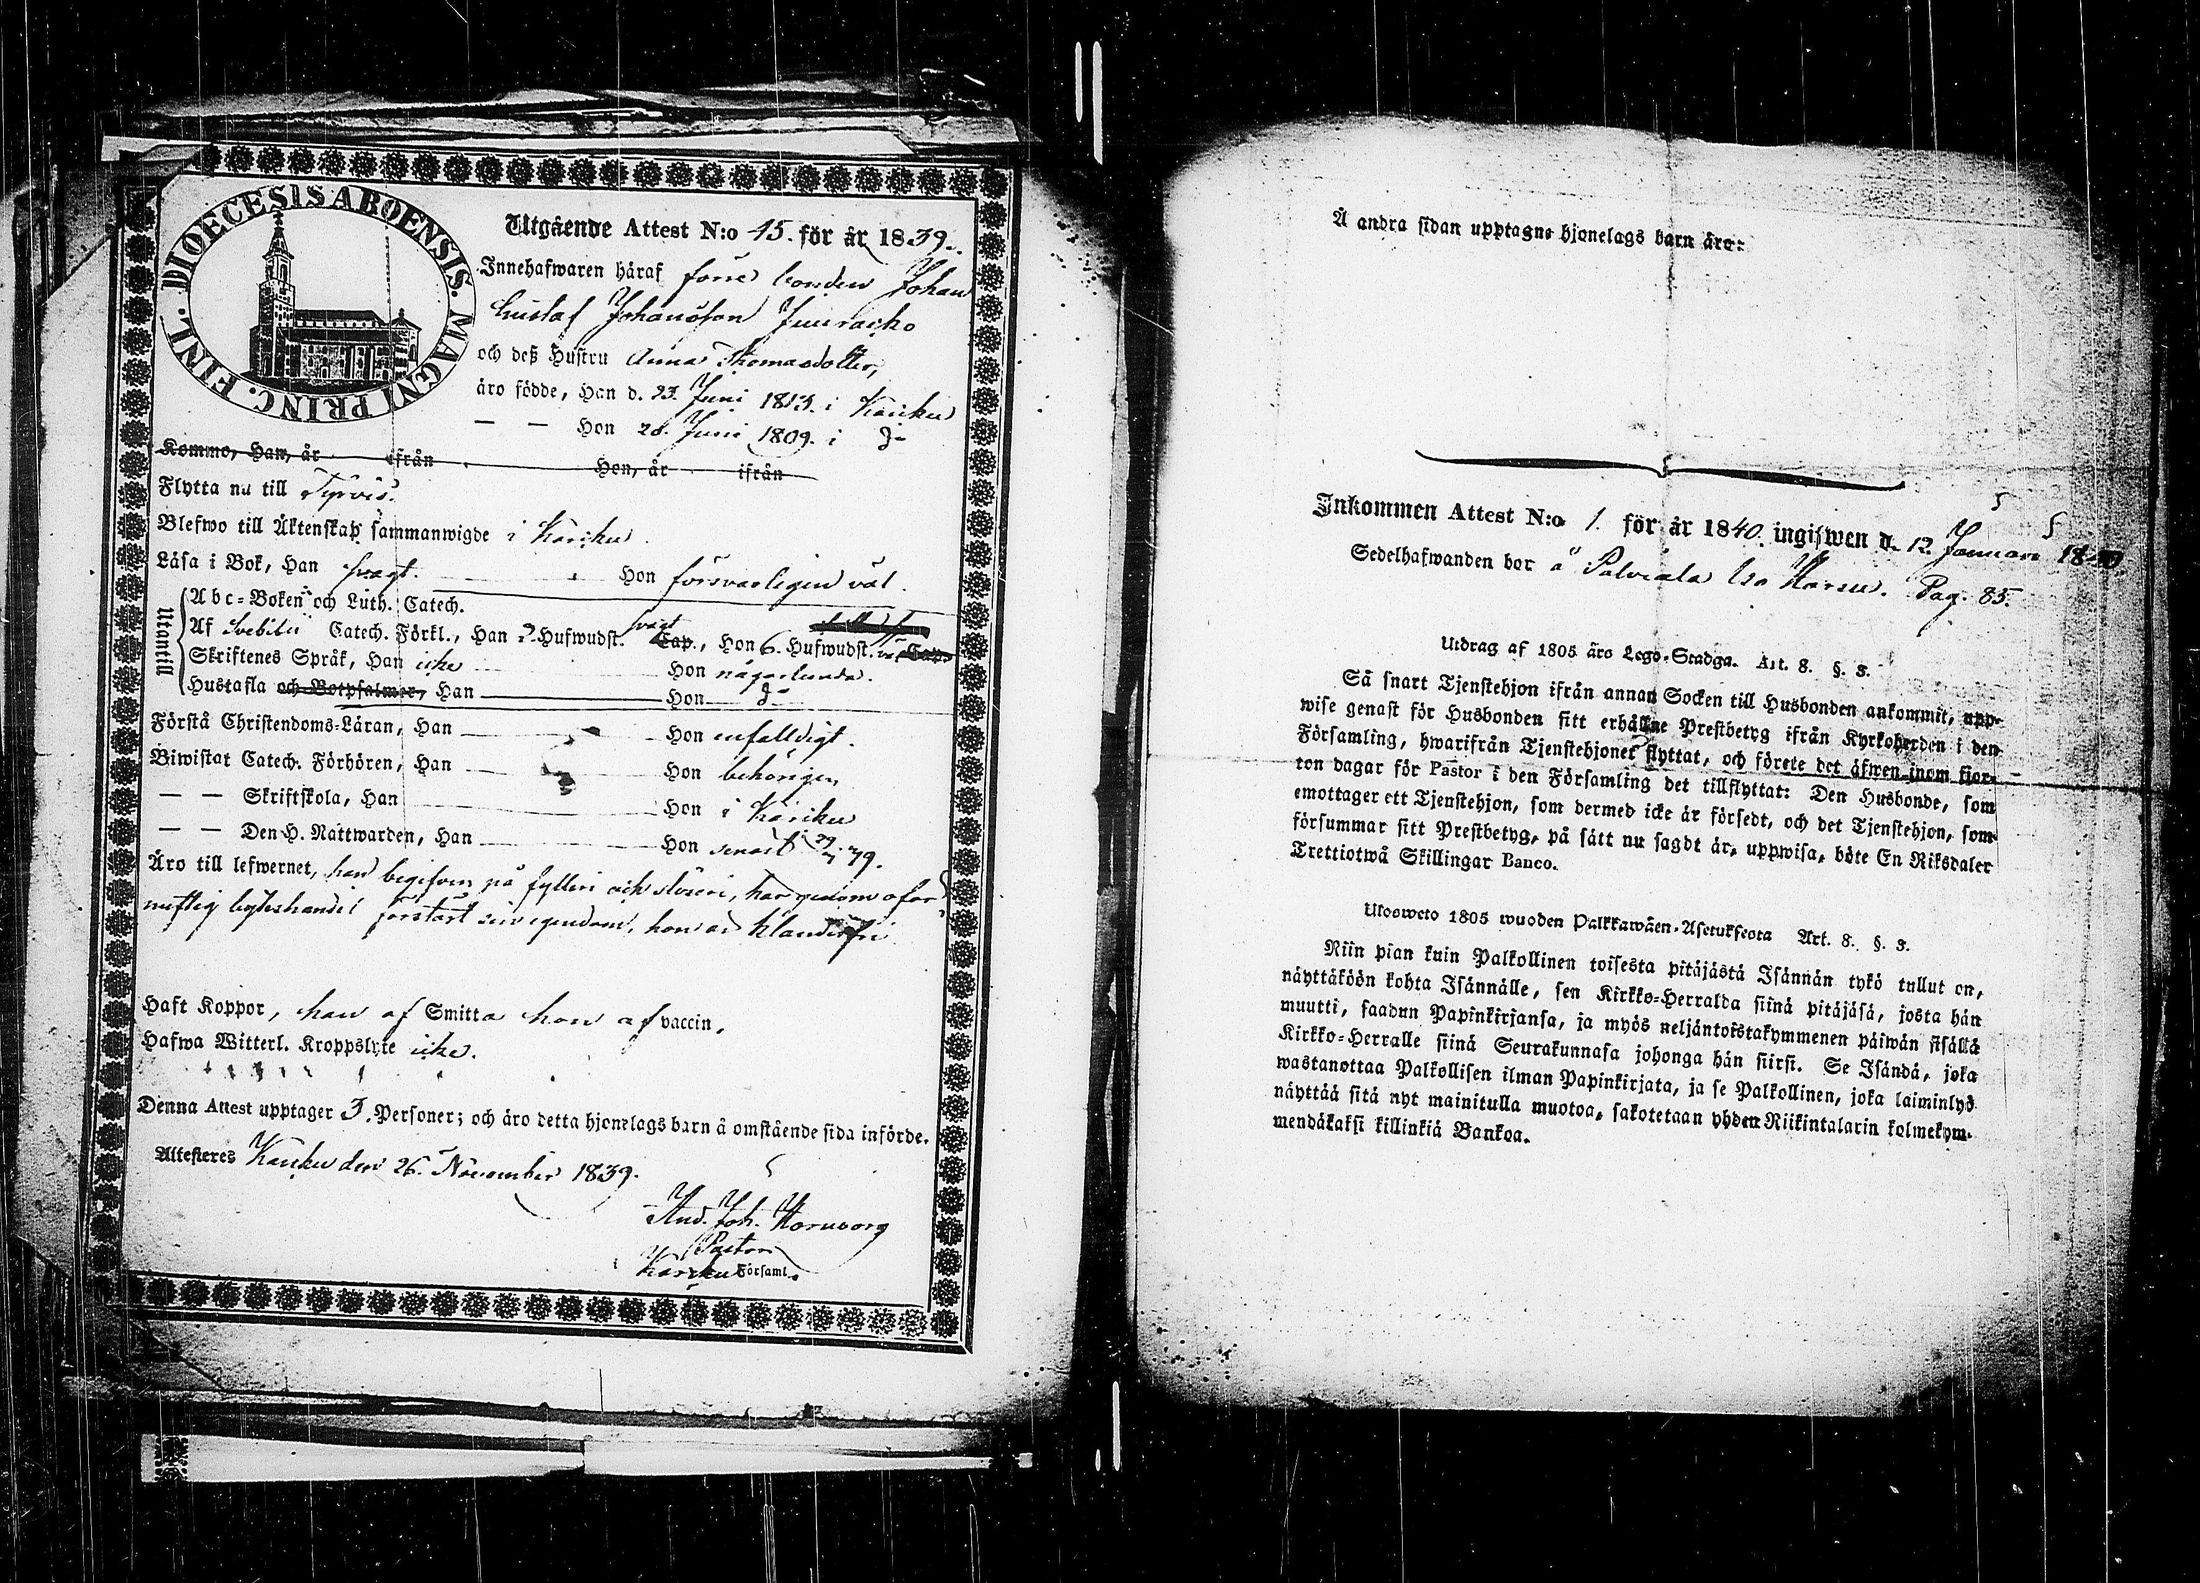 DIOECESIS ABOENSIS. MAGNI PRINC. FINL.
Utgående Attest N:o 15. för år 1839.
Innehafwaren häraf förre bonden Johan
Gustaf Johansson Juurakko
och deß Hustru Anna Thomasdotter,
äro födde, Han d. 23. Juni 1813. i Karku
— — Hon 28. Juni 1809. i D:o
Kommo, Han, år ifrån Hon, år ifrån
Flytta nu till Tyrvis.
Blefwo till Äktenskap sammanwigde i Karku.
Läsa i Bok, Han svagt. Hon försvarligen väl.
Utantill
Abc-Boken och Luth. Catech.
Af Svebilii Catech. Förkl., Han 2 Hufwudst. svagt Cap., Hon 6. Hufwudst. Cap.
Skriftenes Språk, Han icke Hon någorlunda.
Hustafla och Botpsalmer, Han Hon D:o
Förstå Christendoms-Läran, Han Hon enfalldigt.
Biwistat Catech. Förhören, Han Hon behörigen
— — Skriftskola, Han Hon i Karku
— — Den H. Nattwarden, Han Hon senast 39.
Äro till lefwernet, han begifven på fylleri och slöseri, har genom oför
nuftig byteshandel förstört sin egendom, hon är klanderfri
Haft Koppor, han af Smitta hon af vaccin.
Hafwa Witterl. Kroppslyte icke.
Denna Attest upptager 3. Personer; och äro detta hjonelags barn å omstående sida införde.
Altesteres Karku den 26. November 1839.
And. Joh. Hornborg
Pastor
Karku Församl.
Å andra sidan upptagne hjonelags barn äro:
Inkommen Attest N:o 1. för år 1840. ingifwen d. 12. Januari 1840
Sedelhafwanden bor å Palviala Iso Karsu. Pag. 85.
Utdrag af 1805 års Lego-Stadga. Art. 8. §. 3.
Så snart Tjenstehjon ifrån annan Socken till Husbonden ankommit, upp-
wise genast för Husbonden sitt erhållne Prestbetyg ifrån Kyrkoherden i den
Församling, hwarifrån Tjenstehjonet flyttat, och förete det äfwen inom fjor-
ton dagar för Pastor i den Församling det tillflyttat: Den Husbonde, som
emottager ett Tjenstehjon, som dermed icke är försedt, och det Tjenstehjon, som
försummar sitt Prestbetyg, på sätt nu sagdt är, uppwisa, böte En Riksdaler
Trettiotwå Skillingar Banco.
Ulosweto 1805 wuoden Palkkawäen-Asetuksesta Art. 8. §. 3.
Niin pian kuin Palkollinen toisesta pitäjästä Isännän tykö tullut on,
näyttäköön kohta Isännälle, sen Kirkko-Herralda siinä pitäjäsä, josta hän
muutti, saadun Papinkirjansa, ja myös neljäntoistakymmenen päiwän sisällä
Kirkko-Herralle siinä Seurakunnasa johonga hän siirsi. Se Isändä, joka
wastanottaa Palkollisen ilman Papinkirjata, ja se Palkollinen, joka laiminlyö
näyttää sitä nyt mainitulla muotoa, sakotetaan yhden Riikintalarin kolmekym-
mendäkaksi killinkiä Bankoa.